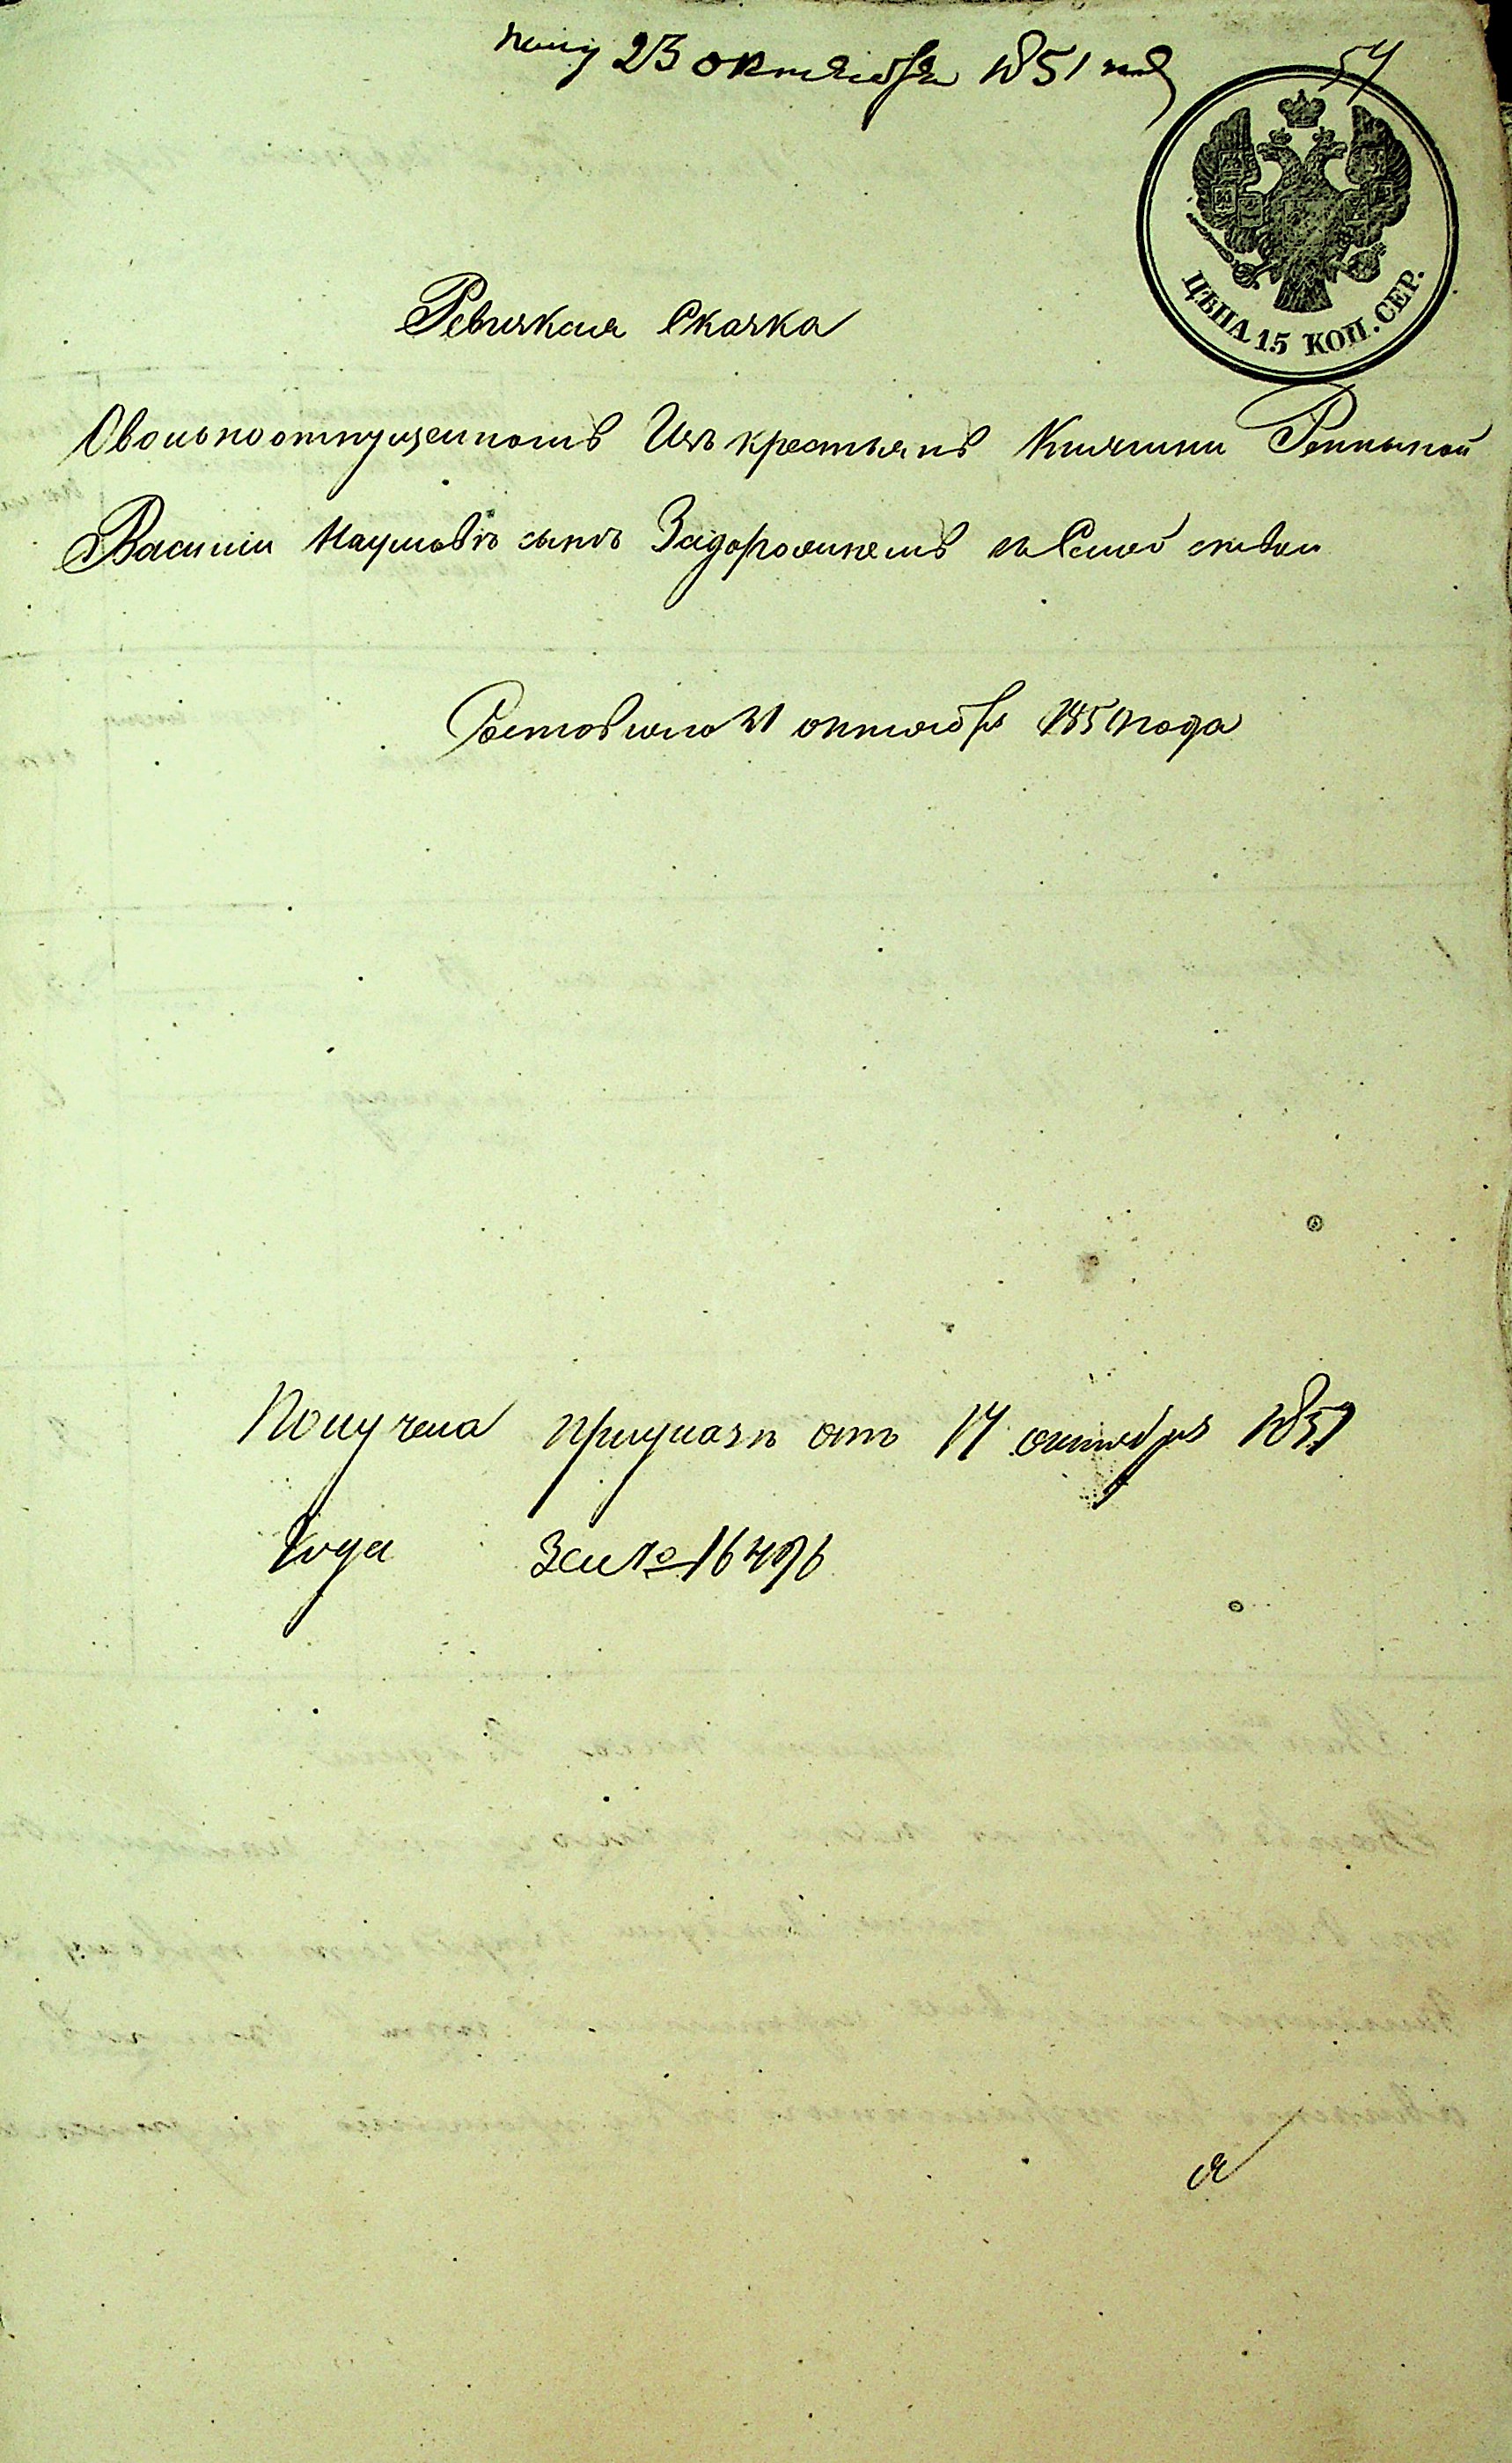 Полу 23 октября 1851 год
54
ЦѢНА 15 КОП. СЕР.
Ревизкая Скаска
Овольноотпущенномъ Изъ крестьянъ Княгини Репниной
Василии Наумовѣ сынѣ Задорожнемъ съ Семействомъ
Состовлена 21 октября 1851 года
Получена приуказѣ отъ 17 октября 1851
Года За № 16496